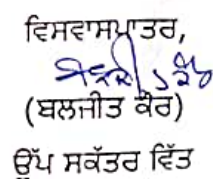 ਵਿਸਵਾਸਪਾਤਰ,
(ਬਲਜੀਤ ਕੌਰ)
ਉੱਪ ਸਕੱਤਰ ਵਿੱਤ